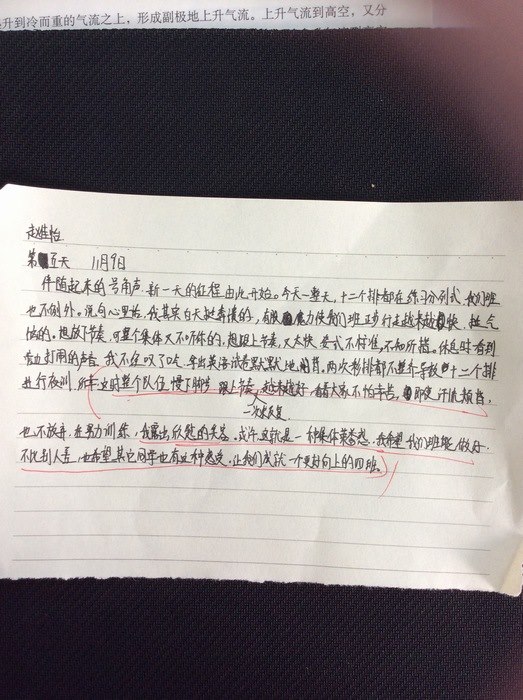 升到冷而重的气流之上，形成副极地上升气流。上升气流到高空，又分
赵佳怡
第五天 11月9日
伴随起来的号角声，新一天的征程由此开始。今天一整天，十二个排都在练习分列式，我们班
也不例外。说句心里话，我其实白天挺寿情的，有股魔力使我们班正步行走越来越快，挺气
恼的。想放下节奏，可整个集体又不听你的，想跟上节奏，又太快，姿式不标准，不知所措。休息时看到
我不住叹了口气，拿出英语试卷默默地背，两次彩排都不整齐导致十二个排
进行夜训，所幸这时整个队伍，慢下脚步，跟上节奏，越来越好，看着大家不怕辛苦，即使汗流颊背，
一次次反复
也不放弃，在努力训练，我露出欣慰的笑容。或许这就是一种集体荣誉感，我希望我们班能做好，
不比别人差，也希望其它同学也有这种感受，让我们成就一个更好向上的四班。